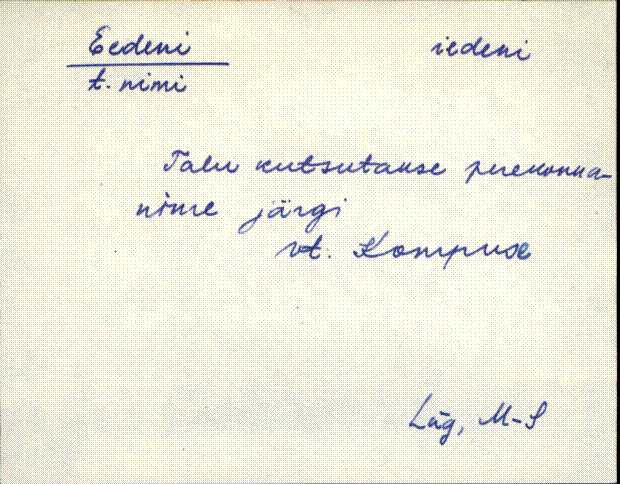 Eedeni iedeni
t. nimi
Talu kutsutakse perekonna-
nime järgi
vt. Kompuse
Lüg, M-S